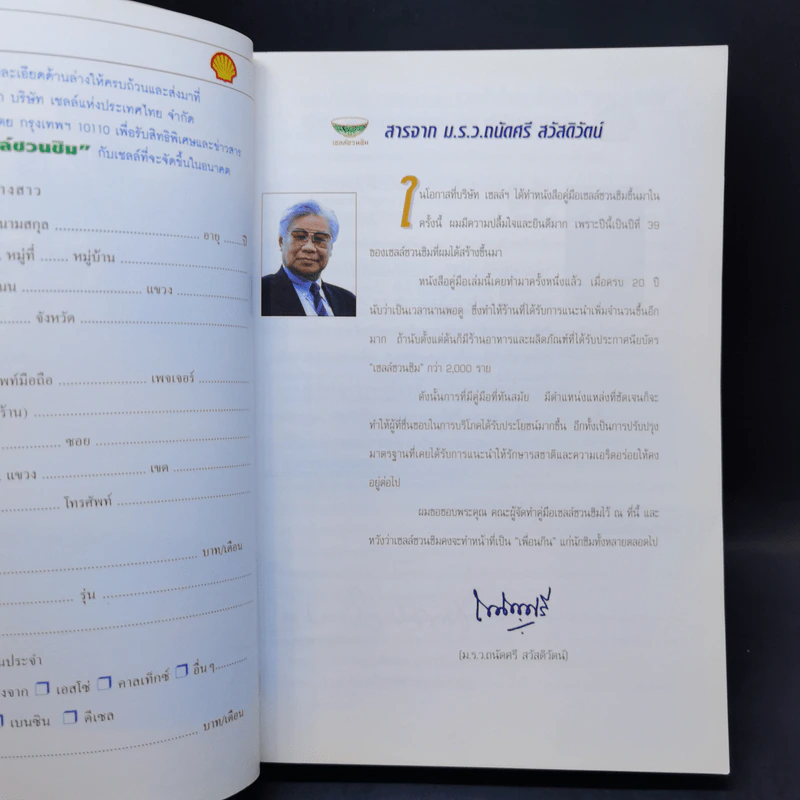 ละเอียดด้านล่างให้ครบถ้วนและส่งมาที่
บริษัท เชลล์แห่งประเทศไทย จำกัด
กรุงเทพฯ 10110 เพื่อรับสิทธิพิเศษและข่าวสาร
ล์ชวนชิม" กับเชลล์ที่จะจัดขึ้นในอนาคต
างสาว
นามสกุล ........ อายุ ......ปี
หมู่ที่ ....... หมู่บ้าน ........
ถนน ........ แขวง ........
........ จังหวัด ........
พท์มือถือ ........ เพจเจอร์ ........
ร้าน) ........
........ ซอย ........
แขวง ........ เขต ........
........ โทรศัพท์ ........
........ บาท/เดือน
........ รุ่น ........
ประจำ
งจาก ❒ เอสโซ่ ❒ คาลเท็กซ์ ❒ อื่นๆ........
❒ เบนซิน ❒ ดีเซล
........ บาท/เดือน
เชลล์ชวนชิม
สารจาก ม.ร.ว.ถนัดศรี สวัสดิวัตน์
ในโอกาสที่บริษัท เชลล์ฯ ได้ทำหนังสือคู่มือเชลล์ชวนชิมขึ้นมาใน
ครั้งนี้ ผมมีความปลื้มใจและยินดีมาก เพราะปีนี้เป็นปีที่ 39
ของเชลล์ชวนชิมที่ผมได้สร้างขึ้นมา
หนังสือคู่มือเล่มนี้เคยทำมาครั้งหนึ่งแล้ว เมื่อครบ 20 ปี
นับว่าเป็นเวลานานพอดู ซึ่งทำให้ร้านที่ได้รับการแนะนำเพิ่มจำนวนขึ้นอีก
มาก ถ้านับตั้งแต่ต้นก็มีร้านอาหารและผลิตภัณฑ์ที่ได้รับประกาศนียบัตร
"เชลล์ชวนชิม" กว่า 2,000 ราย
ดังนั้นการที่มีคู่มือที่ทันสมัย มีตำแหน่งแหล่งที่ชัดเจนก็จะ
ทำให้ผู้ที่ชื่นชอบในการบริโภคได้รับประโยชน์มากขึ้น อีกทั้งเป็นการปรับปรุง
มาตรฐานที่เคยได้รับการแนะนำให้รักษารสชาติและความเอร็ดอร่อยให้คง
อยู่ต่อไป
ผมขอขอบพระคุณ คณะผู้จัดทำคู่มือเชลล์ชวนชิมไว้ ณ ที่นี้ และ
หวังว่าเชลล์ชวนชิมคงจะทำหน้าที่เป็น "เพื่อนกิน" แก่นักชิมทั้งหลายตลอดไป
(ม.ร.ว.ถนัดศรี สวัสดิวัตน์)